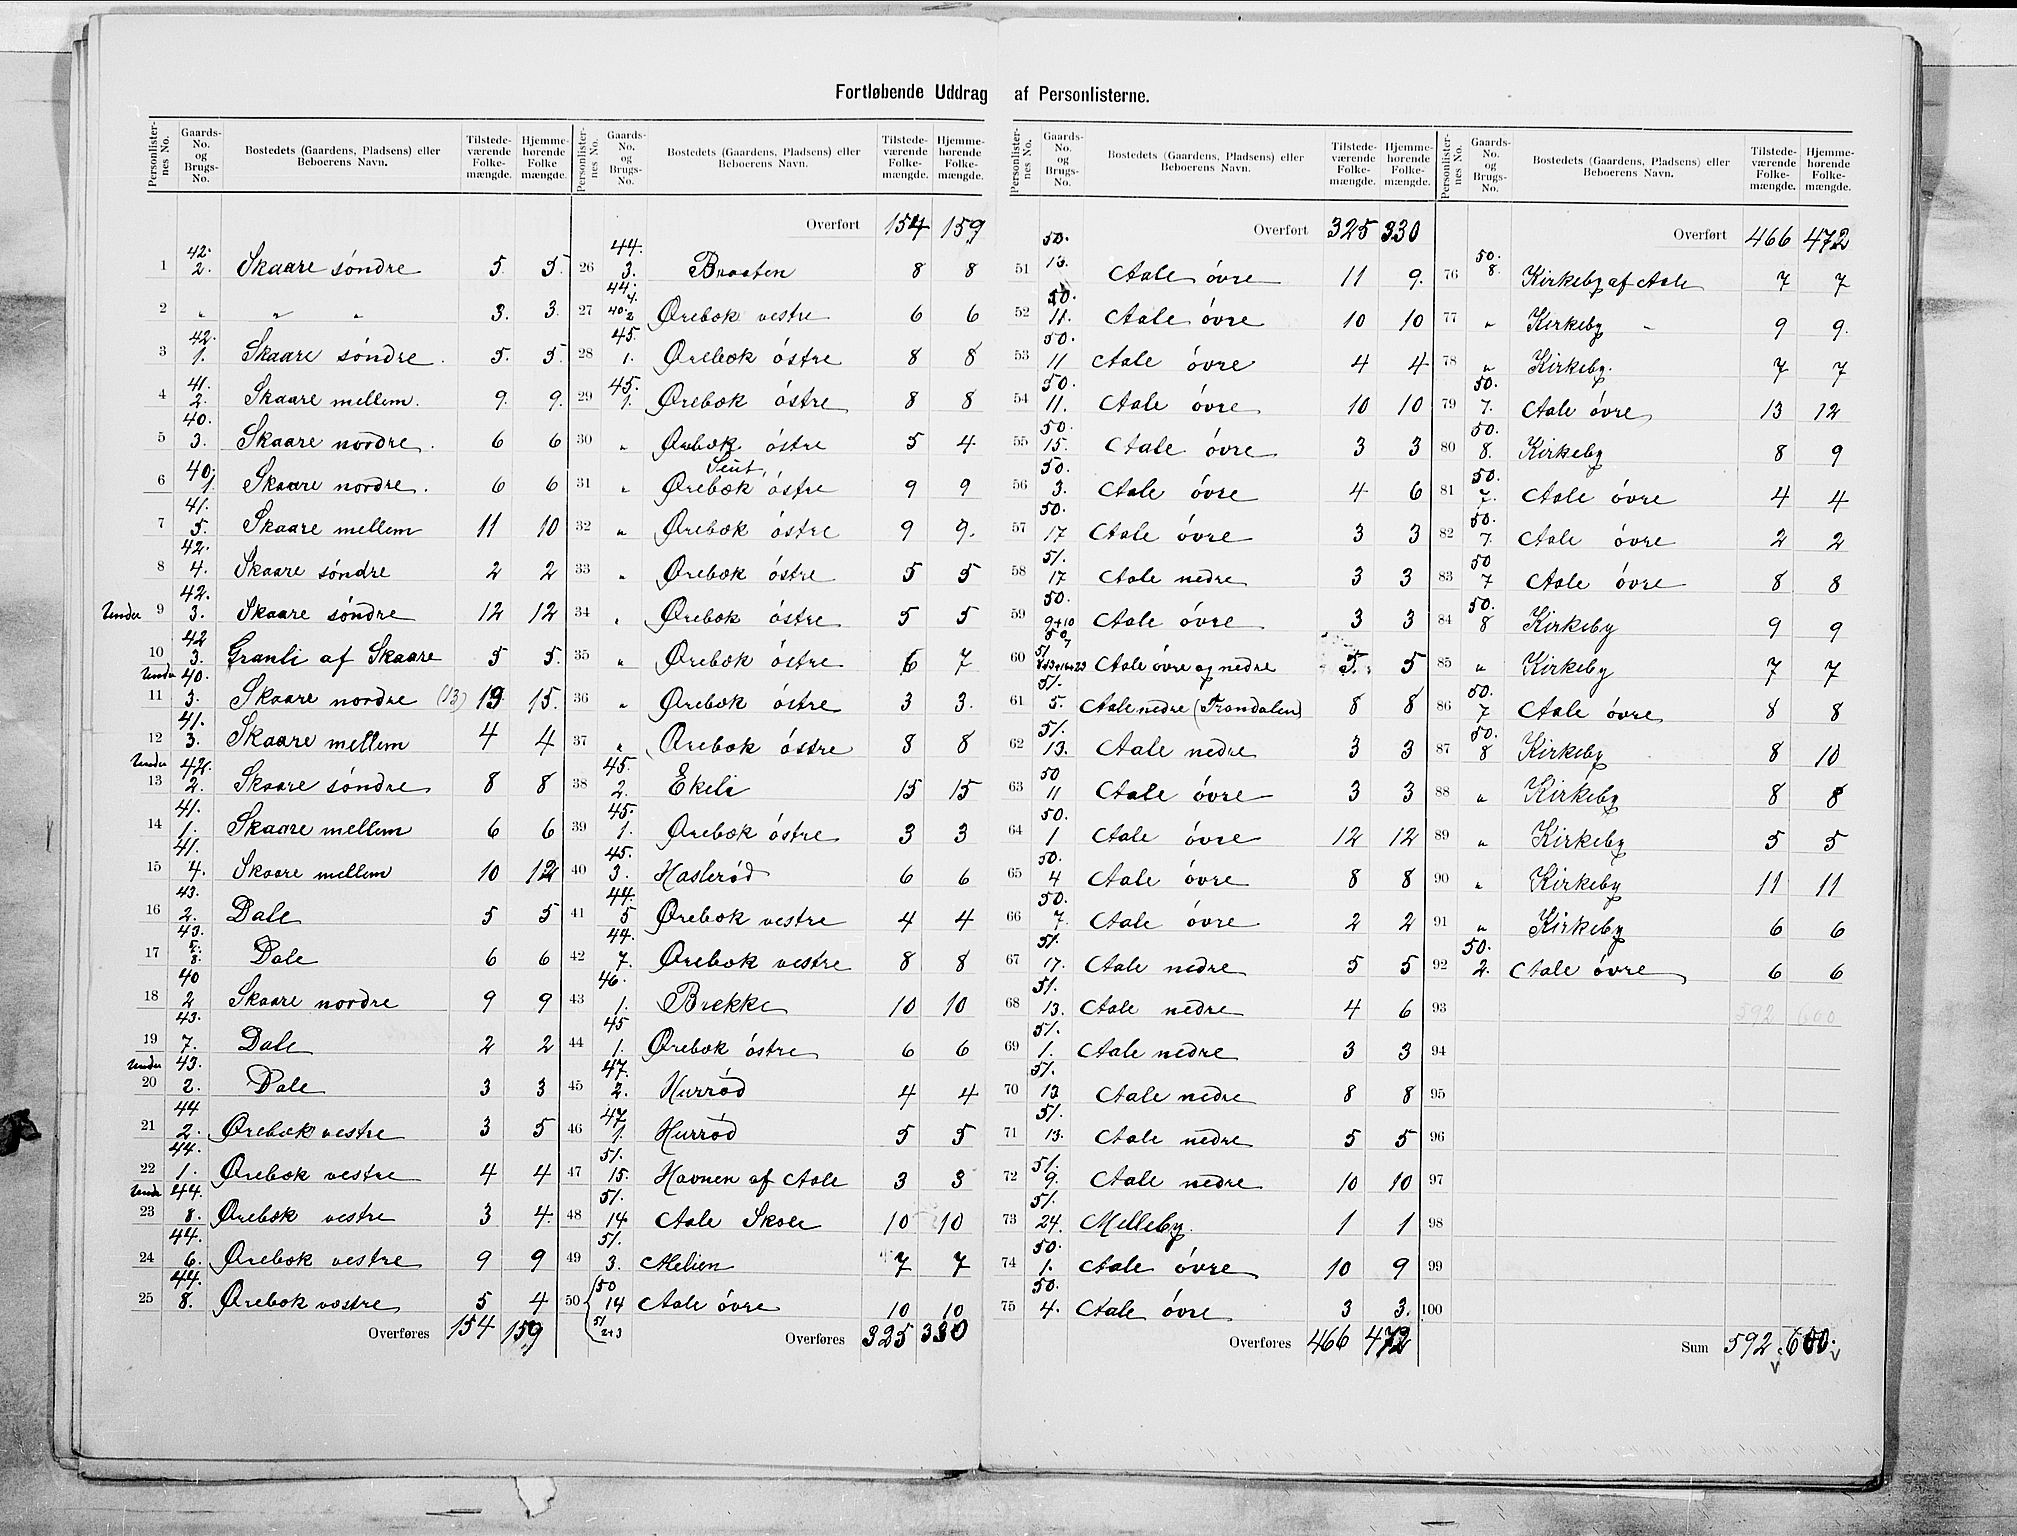 Fortløbende Uddrag af Personlisterne.
Personlister-nes No. Gaards-No. og Brugs-No. Bostedets (Gaardens, Pladsens) eller Beboerens Navn. Tilstede-værende Folke-mængde. Hjemme-hørende Folke mængde.
1 42. 2. Skaare söndre 5. 5.
2 " " " 3. 3.
3 42. 1. Skaare söndre. 5. 5.
4 41. 2. Skaare mellem. 9. 9.
5 40. 3. Skaare nordre. 6 6
6 40. 1. Skaare nordre. 6 6
7 41. 5. Skaare mellem 11 10
8 42. 4. Skaare söndre 2 2
Under 9 42. 3. Skaare söndre 12 12
10 42 3. Granli af Skaare 5 5.
Under 11 40. 3. Skaare nordre (13) 13 15.
12 41. 3. Skaare mellem 4 4
Under 13 42. 2. Skaare söndre 8 8
14 41. 1. Skaare mellem 6 6
15 41. 4. Skaare mellem 10 12
16 43. 2. Dale 5 5
17 43. 5. 8. Dale 6 6
18 40 2 Skaare nordre 9 9
19 43. 7. Dale 2 2
Under 20 43. 2. Dale 3 3
21 44 2. Ørebæk vestre 3 5
22 44. 1. Ørebæk vestre 4 4
Under 23 44. 8. Ørebæk vestre 3 4
24 44. 6. Ørebæk vestre 9 9
25 44. 8. Ørebæk vestre 5 4
Overføres 154 159
Personlister-nes No. Gaards-No. og Brugs-No. Bostedets (Gaardens, Pladsens) eller Beboerens Navn. Tilstede-værende Folke-mængde. Hjemme-hørende Folke-mængde.
Overført 154 159
26 44. 3. Braaten 8 8
27 44. 4. 40. 2 Ørebæk vestre 6 6
28 45. 1. Ørebæk östre 8 8
29 45. 1. Ørebæk östre 8 8
30 " Ørebæk östre 5 4
31 " Ørebæk östre 9 9
32 " Ørebæk östre 9 9.
33 " Ørebæk östre 5 5
34 " Ørebæk östre 5 5
35 " Ørebæk östre 6 7
36 " Ørebæk östre 3 3.
37 " Ørebæk östre 8 8
38 45. 2. Ekeli 15 15
39 45. 1. Ørebæk östre 3 3
40 45. 3. Haslerød 6 6
41 44. 5 Ørebæk vestre 4 4
42 44. 7. Ørebæk vestre 8 8
43 46. 1. Brekke 10 10
44 45 1. Ørebæk östre 6 6
45 47. 2. Hurrød 4 4
46 47. 1. Hurrød 5 5
47 51. 15. Havnen af Aale 3 3
48 51. 14 Aale Skole 10 10
49 51. 3. Melien 7 7
50 50 14 Aale övre 10 10
51 2+3
Overføres 325 330
Personlister-nes No. Gaards-No. og Brugs-No. Bostedets (Gaardens, Pladsens) eller Beboerens Navn. Tilstede-værende Folke-mængde. Hjemme-hørende Folke-mængde.
Overført 325 330
51 50. 13. Aale övre 11 9.
52 50. 11. Aale övre 10 10
53 50. 11 Aale övre 4 4
54 50. 11. Aale övre 10 10
55 50. 15. Aale övre 3 3
56 50. 3. Aale övre 4 6
57 50. 17 Aale övre 3 3
58 51. 17 Aale nedre 3 3
59 50. 9+10 Aale övre 3 3
60 Aale övre og nedre 5. 5
61 51. 5. Aale nedre (Trondalen) 8 8
62 51. 13. Aale nedre 3 3
63 50 11 Aale övre 3 3
64 50. 1 Aale övre 12 12
65 50. 4 Aale övre 8 8
66 50. 7. Aale övre 2 2
67 51. 17. Aale nedre 5 5
68 51. 13. Aale nedre 4 6
69 51. 1. Aale nedre 3 3
70 51. 13 Aale nedre 8 8
71 51. 13. Aale nedre 5 5
72 51. 9. Aale nedre 10 10
73 51. 24. Melleby. 1 1
74 50. 1. Aale övre 10 9
75 50. 4. Aale övre 3 3.
Overføres 466 472
Personlister-nes No. Gaards-No. og Brugs-No. Bostedets (Gaardens, Pladsens) eller Beboerens Navn. Tilstede-værende Folke-mængde. Hjemme-hørende Folke-mængde.
Overført 466 472
76 50. 8. Kirkeby af Aale 7 7
77 " Kirkeby " 9 9.
78 " Kirkeby. 7 7
79 50. 7. Aale övre 13 12
80 50. 8. Kirkeby 8 9
81 50. 7. Aale övre 4 4
82 50. 7. Aale övre 2 2
83 50 7 Aale övre 8 8
84 50. 8 Kirkeby 9 9
85 " Kirkeby 7 7
86 50. 7 Aale övre 8 8
87 50. 8 Kirkeby 8 10
88 " Kirkeby 8 8
89 " Kirkeby 5 5
90 " Kirkeby 11 11
91 " Kirkeby 6 6
92 50. 2. Aale övre 6 6
93 592 600
94
95
96
97
98
99
100
Sum 592 600.